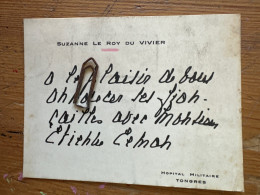 SUZANNE LE ROY DU VIVIER
a le plaisir de vous
annoncer ses fian-
çailles avec Monsieur
Etienne Leman
HOPITAL MILITAIRE
TONGRES